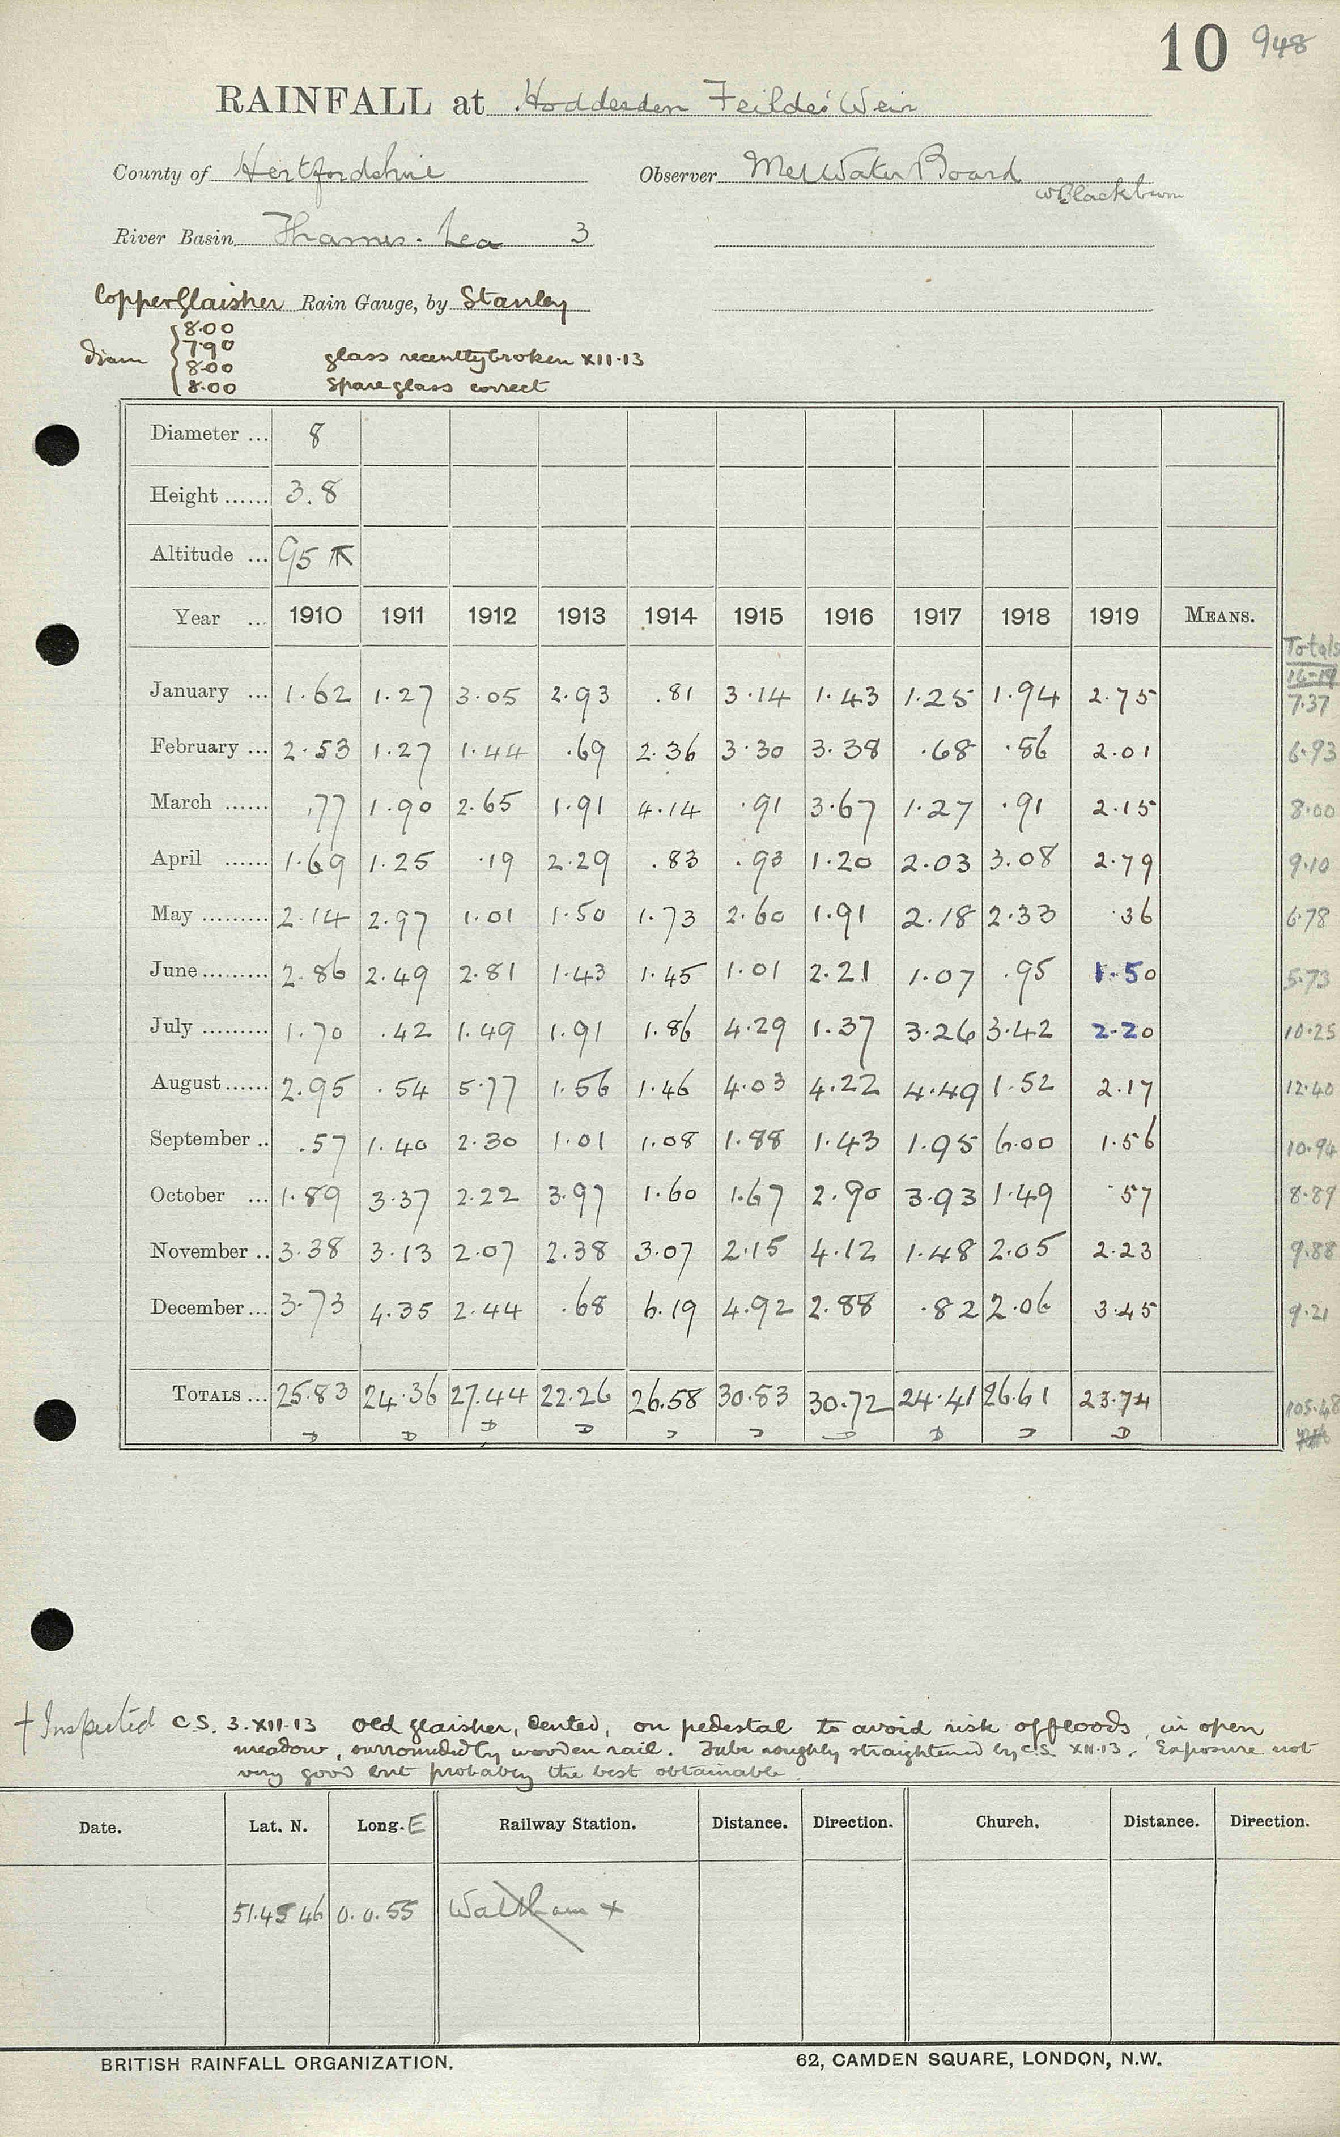 10 948
RAINFALL at Hoddesdon Feildes Weir
County of Hertfordshire Observer Met Water Board
W Blackburn
River Basin Thames. Lea 3
Copper Glaisher Rain Gauge, by Stanley
Diam 8.00
7.90
8.00 glass recently broken XII.13
8.00 Spare glass correct
Diameter ... 8
Height ...... 3.8
Altitude ... 95
Year ... 1910 1911 1912 1913 1914 1915 1916 1917 1918 1919 MEANS. Totals
16-19
January ... 1.62 1.27 3.05 2.93 .81 3.14 1.43 1.25 1.94 2.75 7.37
February ... 2.53 1.27 1.44 .69 2.36 3.30 3.38 .68 .86 2.01 6.93
March ...... .77 1.90 2.65 1.91 4.14 .91 3.67 1.27 .91 2.15 8.00
April ...... 1.69 1.25 .19 2.29 .83 .93 1.20 2.03 3.08 2.79 9.10
May ......... 2.14 2.97 1.01 1.50 1.73 2.60 1.91 2.18 2.33 .36 6.78
June ......... 2.86 2.49 2.81 1.43 1.45 1.01 2.21 1.07 .95 1.50 5.73
July ......... 1.70 .42 1.49 1.91 1.86 4.29 1.37 3.26 3.42 2.20 10.25
August ...... 2.95 .54 5.77 1.56 1.46 4.03 4.22 4.49 1.52 2.17 12.40
September .. .57 1.40 2.30 1.01 1.08 1.88 1.43 1.95 6.00 1.56 10.94
October ... 1.89 3.37 2.22 3.97 1.60 1.67 2.90 3.93 1.49 .57 8.89
November .. 3.38 3.13 2.07 2.38 3.07 2.15 4.12 1.48 2.05 2.23 9.88
December ... 3.73 4.35 2.44 .68 6.19 4.92 2.88 .82 2.06 3.45 9.21
TOTALS ... 25.83 24.36 27.44 22.26 26.58 30.83 30.72 24.41 26.61 23.74 105.48
+ Inspected C.S. 3.XII.13 Old glaisher, dented, on pedestal to avoid risk of floods in open
meadow, surrounded by wooden rail. Tube roughly straightened by C.S. XII.13. Exposure not
very good but probably the best obtainable.
Date. Lat. N. Long. E Railway Station. Distance. Direction. Church. Distance. Direction.
51.45 46 0.0.55 Waltham +
BRITISH RAINFALL ORGANIZATION. 62, CAMDEN SQUARE, LONDON, N.W.